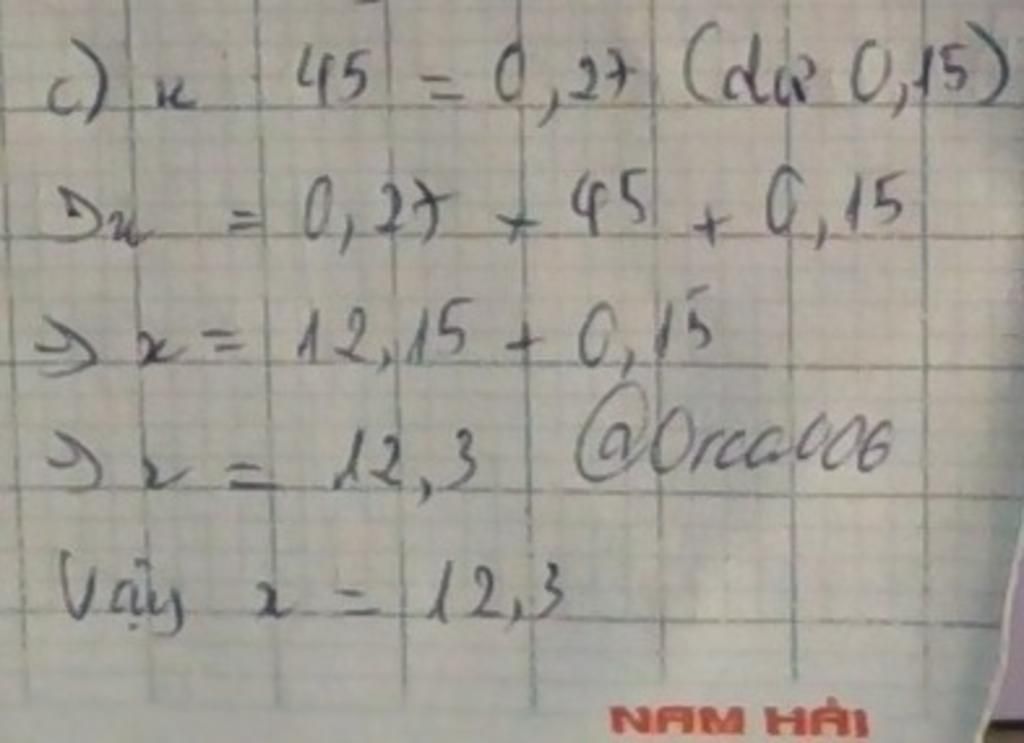 c) x 45 = 0,27 (dư 0,15)
=> x = 0,27 + 45 + 0,15
=> x = 12,15 + 0,15
=> x = 12,3 @Orca006
Vậy x = 12,3
NAM HẢI